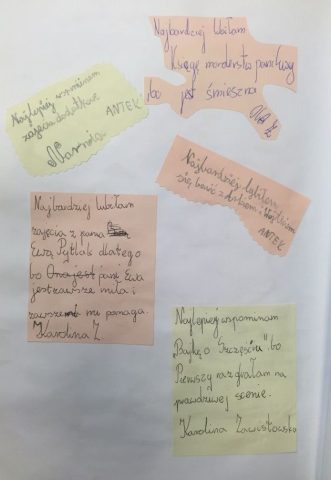 Najbardziej lubiłam
Księgę morderstw pani Luzy
bo jest śmieszna
Najlepiej wspominam
zajęcia dodatkowe
ANTEK
Narnia
Najbardziej lubiłem
się bawić z Antkiem i
ANTEK
Najbardziej lubiłam
zajęcia z panią
Ewą Pytlak dlatego
bo Ona jest pani Ewa
jest zawsze miła i
zawsze mi pomaga.
Karolina Z.
Najlepiej wspominam
„Bajkę o Szczęściu" bo
Pierwszy raz grałam na
prawdziwej scenie.
Karolina Zawistowska